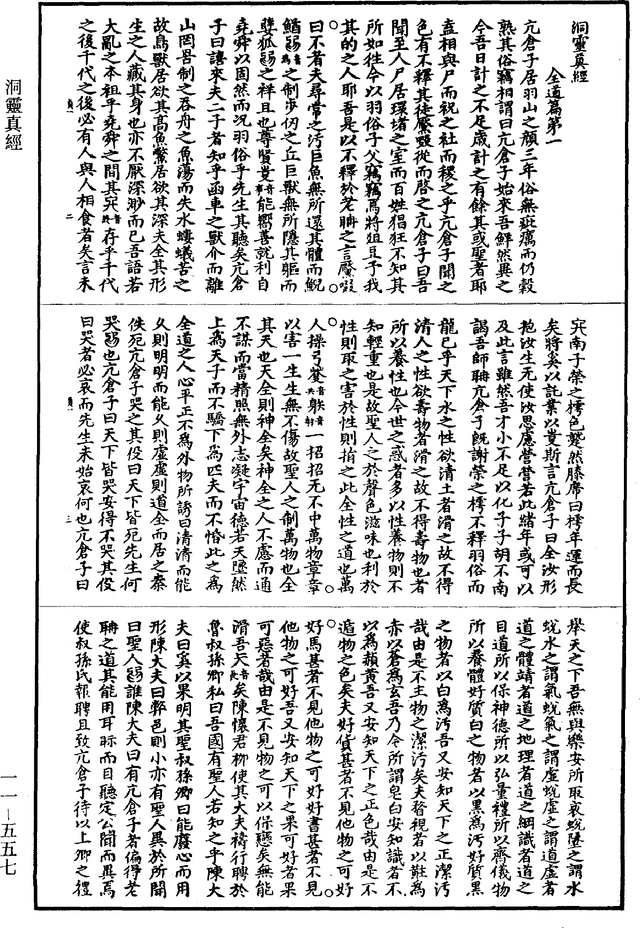 洞靈真經
全道篇第一
亢倉子居羽山之顏三年俗無疵癘而仍穀
熟其俗竊相謂曰亢倉子始來吾鮮然異之
今吾日計之不足歲計之有餘其或聖者耶
盍相與尸而祝之社而稷之乎亢倉子聞之
色有不釋其徒啜從而啓之亢倉子曰吾
聞至人尸居環堵之室而百姓猖狂不知其
所如往今以羽俗子父竊竊焉將俎豆予我
其的之人耶吾是以不釋於老聃之言啜
曰不者夫尋常之汙巨魚無所還其體而鯢
鰌音為之制步仞之丘巨獸無所隱其軀而
狐之祥且也尊賢音事能嚮善就利自
堯舜以固然而況羽俗乎先生其聽矣亢倉
子曰謼來夫二子者知乎函車之獸介而離
山罔罟制之吞舟之魚蕩而失水螻蟻苦之
故鳥獸居欲其高魚鱉居欲其深夫全其形
生之人藏其身也亦不厭深渺而已吾語若
大亂之本祖乎堯舜之間其存乎千代
之後千代之後必有人與人相食者矣言未
南子榮之樗色蹵然膝席曰樗年運而長
矣將奚以託業以斯言亢倉子曰全汝形
抱汝生無使汝思慮營營若此年或可以
及此言雖然吾才小不足以化子子胡不南
謁吾師聃亢倉子既謝榮之樗不釋羽俗而
龍已乎天下水之性欲清土者滑之故不得
清人之性欲壽物者滑之故不得壽物也者
所以養性也今世之惑者多以性養物則不
知輕重也是故聖人之於聲色滋味也利於
性則取之害於性則捐之此全性之道也萬
人操弓共一招招无不中萬物章章
以害一生生無不傷故聖人之制萬物也全
其天也天全則神全矣神全之人不慮而通
不謀而當精照無外志凝宇宙德若天墬然
上為天子而不驕下為匹夫而不惛此之為
全道之人心平正不為外物所誘曰清清而能
久則明明而能久則虛虛則道全而居之秦
佚死亢倉子哭之其役曰天下皆死先生何
哭也亢倉子曰天下皆哭安得不哭其役
曰哭者必哀而先生未始哀何也亢倉子曰
舉天之下吾無與樂安所取哀蛻墬之謂水
蛻水之謂氣蛻氣之謂虛蛻虛之謂道虛者
道之體靖者道之地理者道之綱識者道之
目道所以保神德所以弘量禮所以齊儀物
所以養體好質白之物者以黑為汙好質黑
之物者以白為汙吾又安知天下之正潔汙
哉由是不主物之潔汙矣夫瞀視者以黈為
赤以蒼為玄吾乃今所謂皂白安知識者不
以為赬黃吾又安知天下之正色哉由是不
遁物之色矣夫好貨甚者不見他物之可好
好馬甚者不見他物之可好好書甚者不見
他物之可好吾又安知天下之果可好者果
可惡者哉由是不見物之可以保戀矣無能
滑吾天矣陳懷君柳使其大夫禱行聘於
魯叔孫卿私曰吾國有聖人若知之乎陳大
夫曰奚以果明其聖叔孫卿曰能廢心而用
形陳大夫曰弊邑則小亦有聖人異於所聞
曰聖人誰陳大夫曰有亢倉子者偏得老
聃之道其能用耳眎而目聽定公聞而異焉
使叔孫氏報聘且致亢倉子待以上卿之禮
洞靈真經
一一—五五七